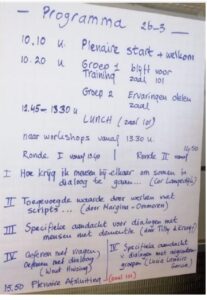 Programma 26-3
10.10 u Plenaire start + welkom
10.20 u Groep 1 blijft voor
Training zaal 101
Groep 2 Ervaringen delen
zaal
12.45 - 13.30 u
LUNCH (zaal 101)
naar workshops vanaf 13.30 u
Ronde I vanaf 13.40 Ronde II vanaf
14.50
I Hoe krijg ik mensen bij elkaar om samen in
dialoog te gaan...
II Toegevoegde waarde door werken met
scripts... (door Margina + Onnoven)
III Specifieke aandacht voor dialogen met
mensen met dementie (door Tilly &
IV Oefenen met vragen
Oefenen met dialoog
IV Specifieke aandacht
v dialogen met
15.50 Plenaire Afsluiting (zaal 101)